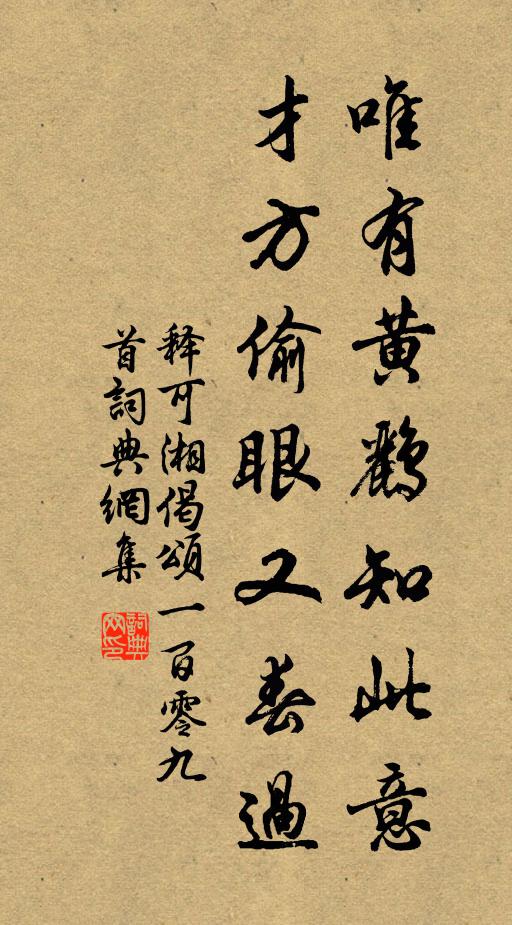 唯有黃鸝知此意
才方偷眼又春過
释可湘偈頌一百零九
首詞典網集
詞典
网印